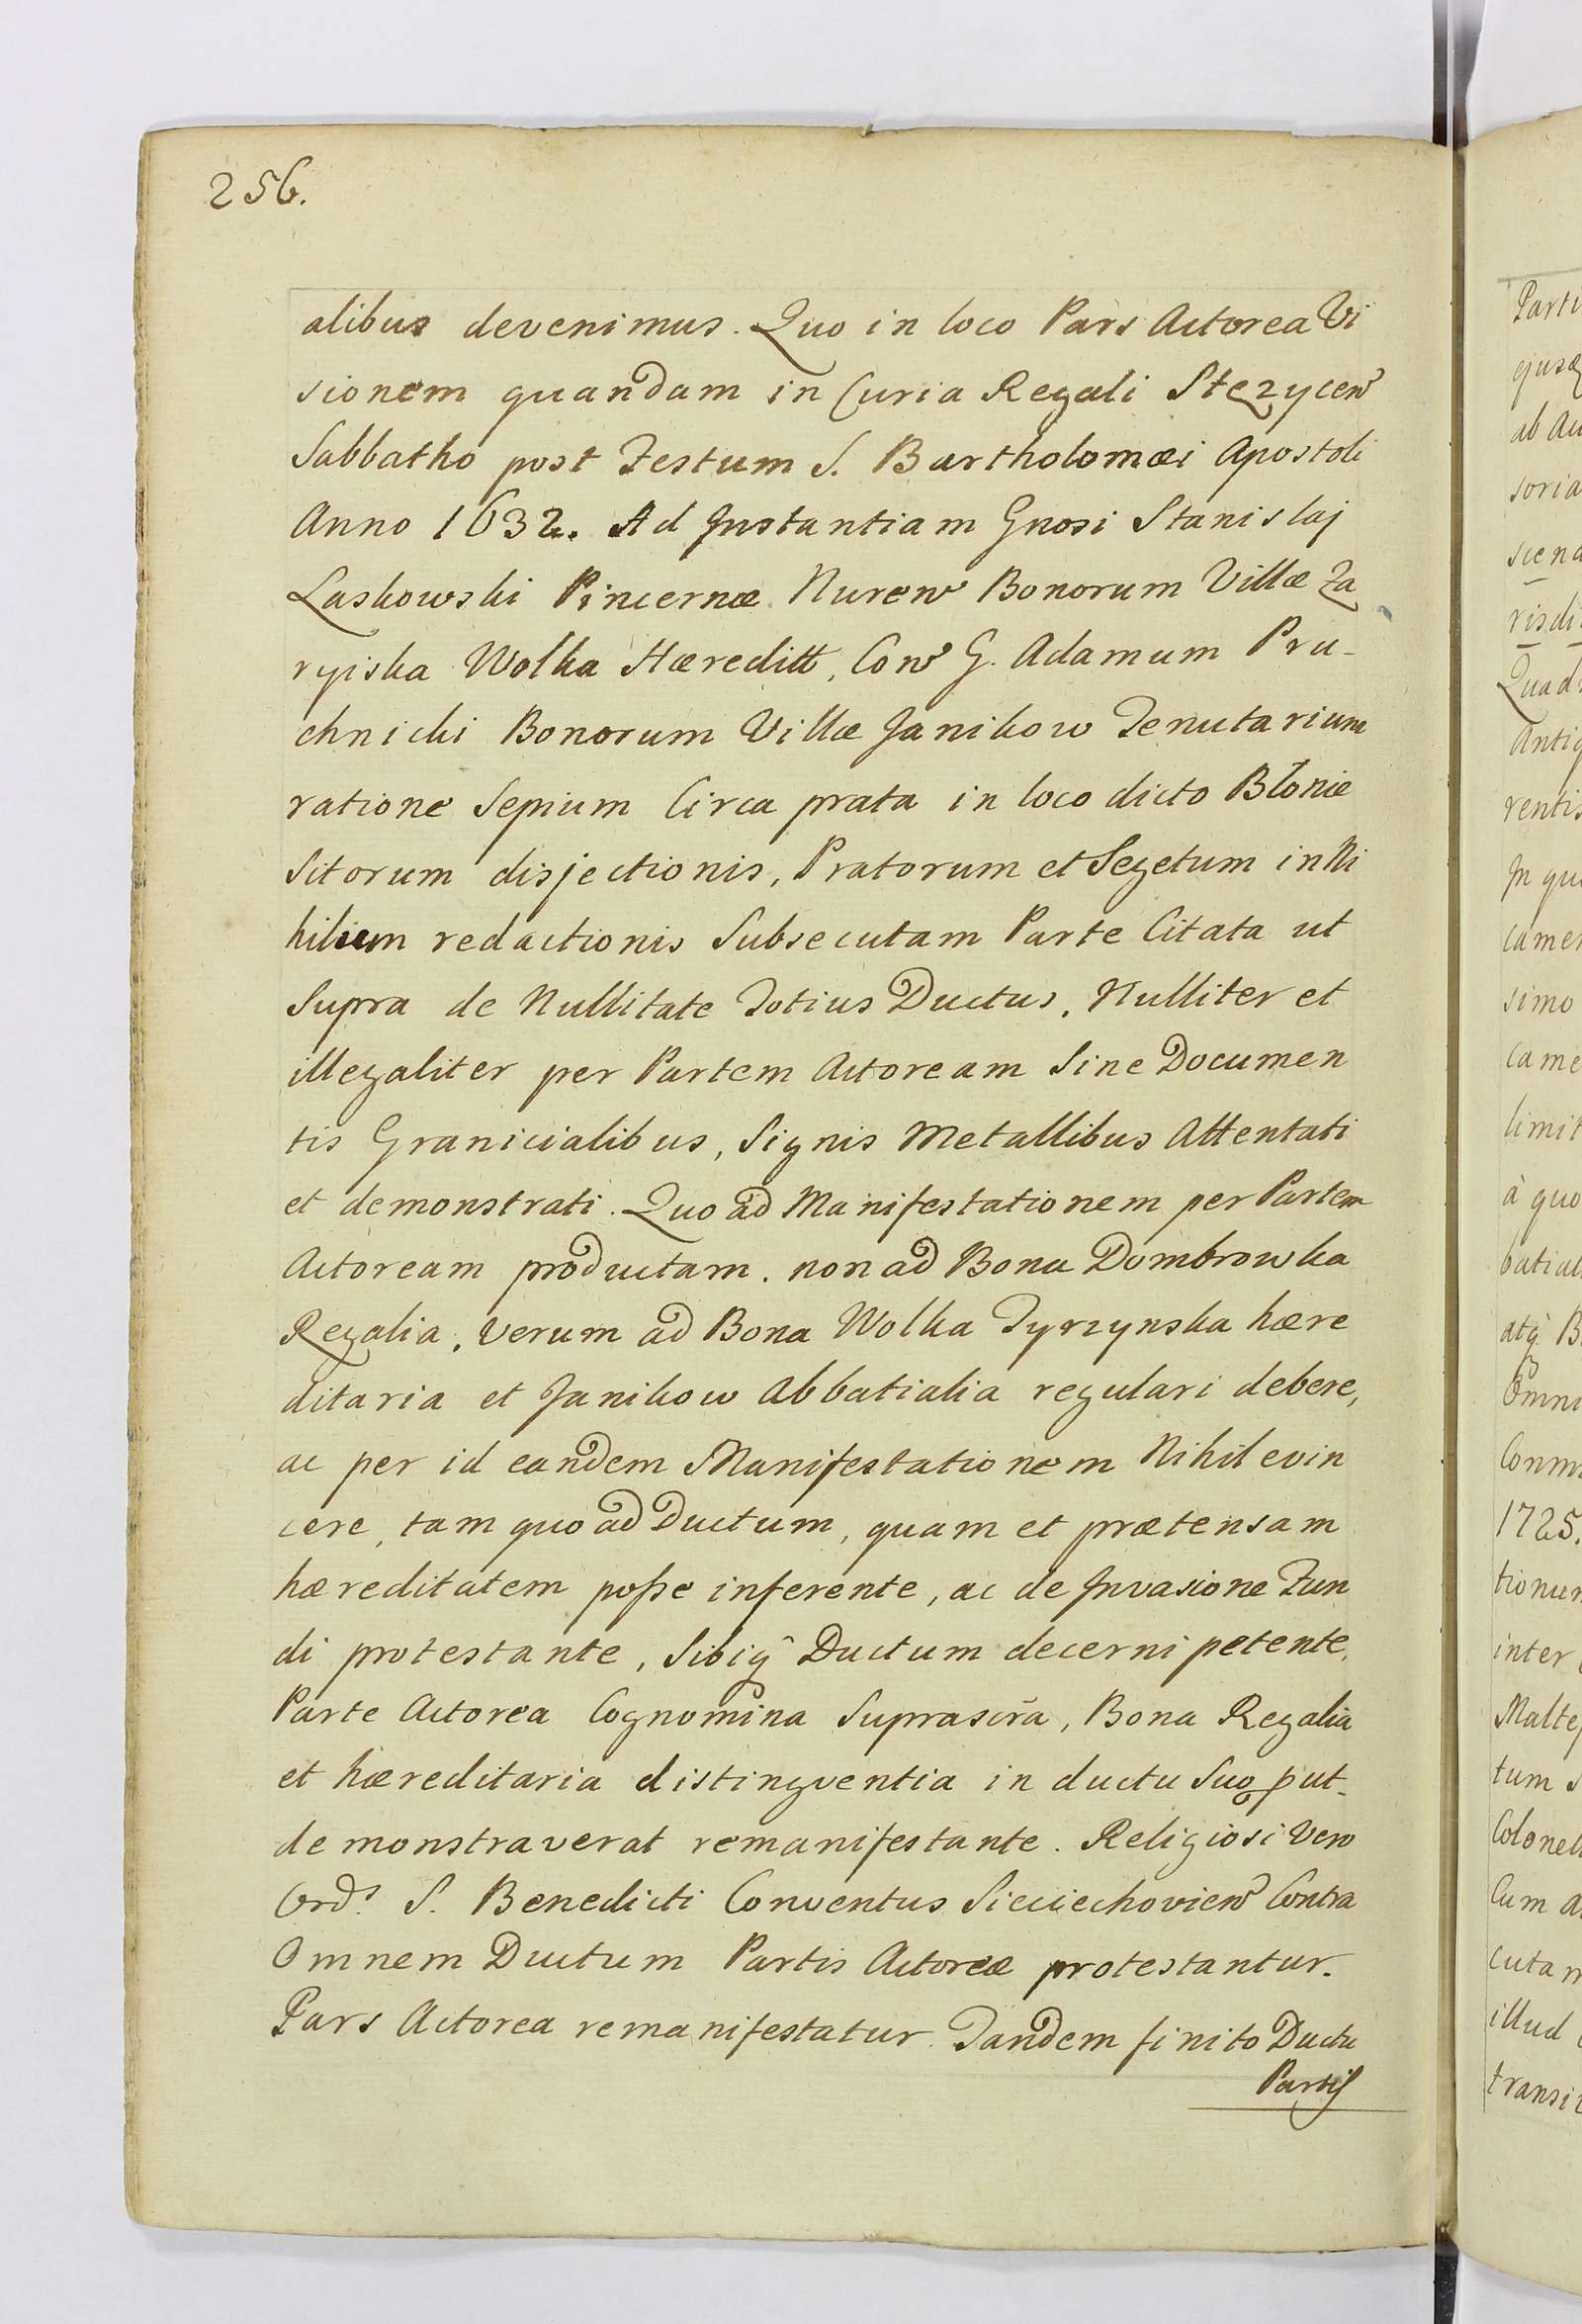 256.
alibus devenimus. Quo in loco Pars Actorea Vi
sionem quandam in Curia Regali Stezycen
Sabbatho post Festum S. Bartholomæi Apostoli
Anno 1632. Ad Instantiam Gnosi Stanislaj
Laskowski Pincernæ Nuren Bonorum Villæ Za
ryiska Wolka Hæreditt, Con G. Adamum Pru-
chnicki Bonorum Villæ Janikow Tenutarium
ratione Sepium Circa prata in loco dicto Błonie
Sitorum disjectionis, Pratorum et Segetum in Ni
hilum redactionis Subsecutam Parte Citata ut
Supra de Nullitate Totius Ductus, Nulliter et
illegaliter per Partem Actoream Sine Documen
tis Granicialibus, Signis Metallibus Attentati
et demonstrati. Quo ad Manifestationem per Partem
Actoream productam. non ad Bona Dombrowka
Regalia, verum ad Bona Wolka Tyrzynska hære
ditaria et Janikow Abbatialia regulari debere,
ac per id eandem Manifestationem Nihil evin
cere, tam quo ad Ductum, quam et prætensam
hæreditatem poſse inferente, ac de Invasione Fun
di protestante, Sibiq̂ Ductum decerni petente,
Parte Actorea Cognomina Suprascr̃a, Bona Regalia
et hæreditaria distingventia in ductu Suo put-
demonstraverat remanifestante. Religiosi Vero
Ord: S. Benedicti Conventus Siecciechovien Contra
Omnem Ductum Partis Actoreæ protestantur.
Pars Actorea remanifestatur. Tandem finito Ductu
Partis
Parti
ab
soria
risdi
Quad
Antiq
rentis
In qu
camer
simo
came
limit
à quo
batial
atq̂ B
Omni
1725.
tionum
inter
tum
Colonel
Cum
cutam
illud
transi